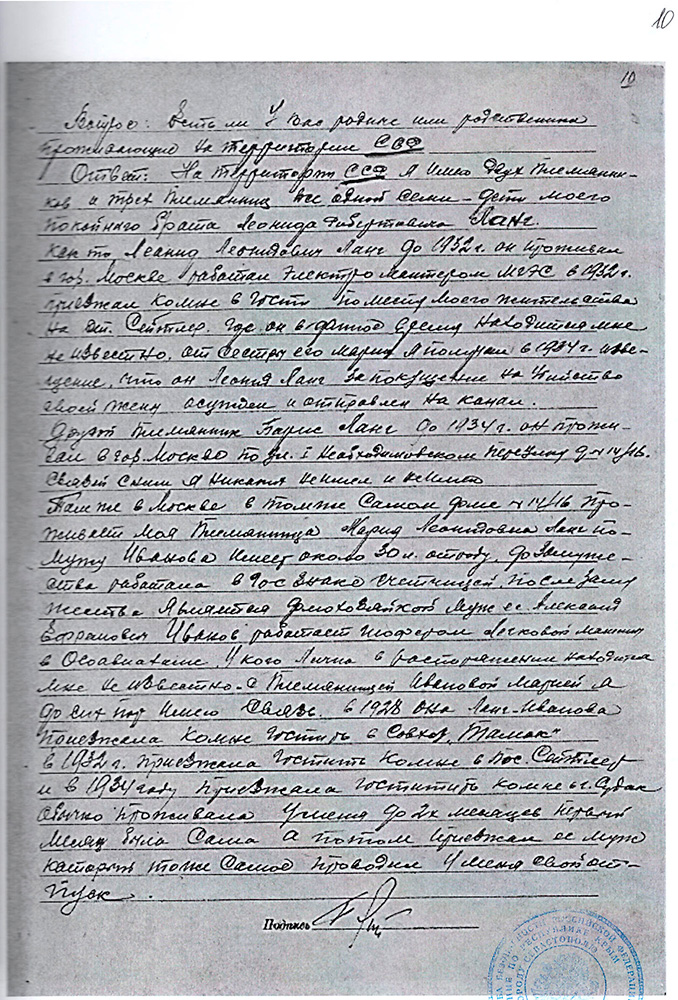 10
10
Вопрос: Есть ли у вас родные или родственники
проживающие на территории СССР
Ответ: На территории СССР я имею двух племянни-
ков и трех племянниц все одной семи – дети моего
покойного брата Леонида Робертовича Ланг.
как то Леонид Леонидович Ланг до 1932 г. он проживал
в гор. Москве работал электромантером МГЭС в 1932 г.
приезжал комне в гости по месту моего жительства
на ст. Сейтлер. Где он в данное время находится мне
не известно, от сестры его Марии я получил в 1934 г. изве-
щение, что он Леонид Ланг за покушение на убийство
своей жены осужден и отправлен на канал.
Другой племянник Борис Ланг до 1934 г. он прожи-
вал в гор. Москве по ул. I переулку д. № 14/16.
связей с ним я никаких не имел и не имею
Там же в Москве в том же самом доме № 14/16 про-
живает моя племянница Мария Леонидовна Ланг по-
мужу Иванова имеет около 30 л. отроду, до замуже-
ства работала в Госзнаке счетчицей, после заму
жества является домохозяйкой муж ее Алексей
Иванов работает шофером легковой машины
в Осоавиахиме. У кого лично в распоряжении находится
мне не известно. С племянницей Ивановой Марией я
до сих пор имею связь. в 1928 она Ланг-Иванова
приезжала комне гостить в Совхоз
в 1932 г. приезжала гостить комне в пос. Сейтлер
и в 1934 году приезжала гостить комне в г. Судак
обычно проживала у меня до 2х месяцев первый
месяц была сама а потом приезжал ее муж
каторый тоже самое проводил у меня свой от-
пуск.
Подпись